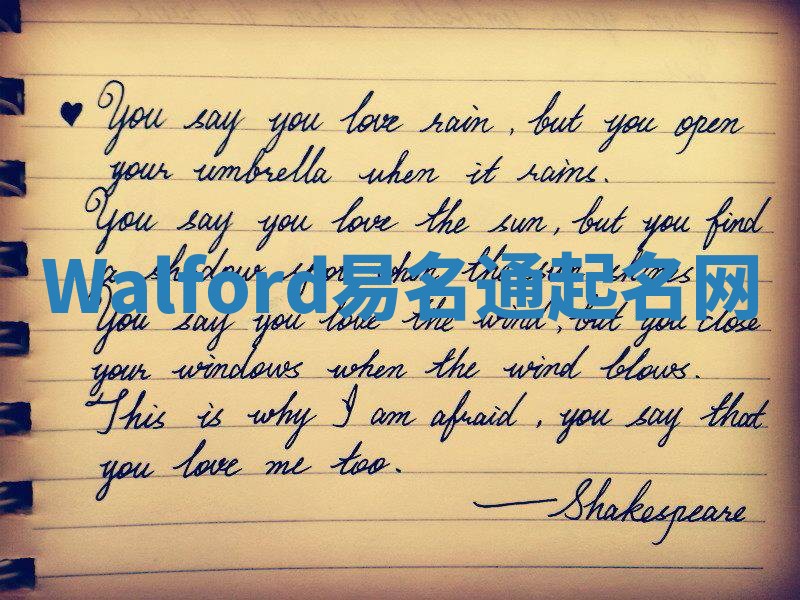 ♥ You say you love rain, but you open
your umbrella when it rains.
You say you love the sun, but you find
a shadow spot when the sun shines
Walford易名通起名网
You say you love the wind, but you close
your windows when the wind blows.
This is why I am afraid, you say that
you love me too.
—Shakespeare